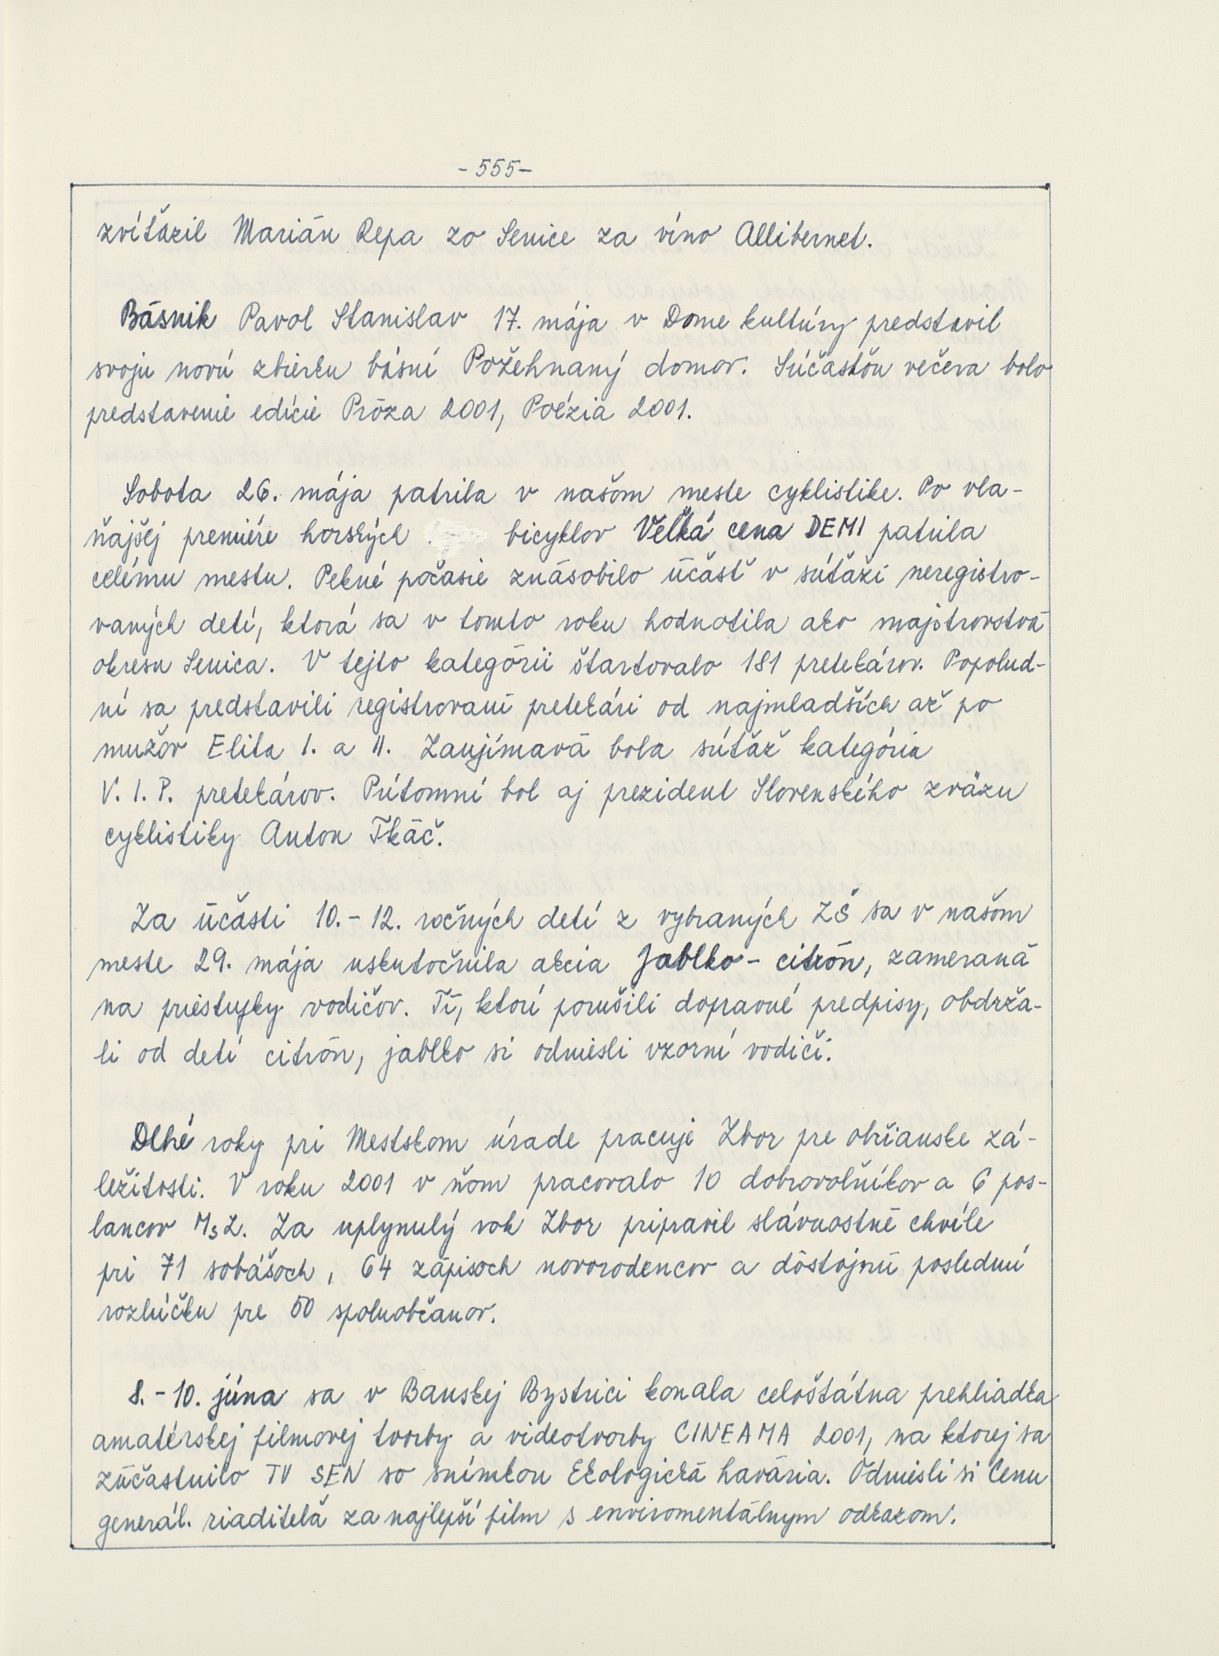 - 555 -
zvíťazil Marián Repa zo Senice za víno Allibernet.
Básnik Pavol Stanislav 17. mája v Dome kultúry predstavil
svoju novú zbierku básní Požehnaný domov. Súčasťou večera bolo
predstavenie edície Próza 2001, Poézia 2001.
Sobota 26. mája patrila v našom meste cyklistike. Po vla-
ňajšej premiére horských bicyklov Veľká cena DEMI patrila
celému mestu. Pekné počasie znásobilo účasť v súťaži neregistro-
vaných detí, ktorá sa v tomto roku hodnotila ako majstrovstvá
okresu Senica. V tejto kategórii štartovalo 181 pretekárov. Popolud-
ní sa predstavili registrovaní pretekári od najmladších až po
mužov Elita I. a II. Zaujímavá bola súťaž kategória
V. I. P. pretekárov. Prítomní bol aj prezident Slovenského zväzu
cyklistiky Anton Tkáč.
Za účasti 10. - 12. ročných detí z vybraných ZŠ sa v našom
meste 29. mája uskutočnila akcia Jablko - citrón, zameraná
na priestupky vodičov. Tí, ktorí porušili dopravné predpisy, obdrža-
li od detí citrón, jablko si odniesli vzorní vodiči.
Dlhé roky pri Mestskom úrade pracuje Zbor pre občianske zá-
ležitosti. V roku 2001 v ňom pracovalo 10 dobrovoľníkov a 6 pos-
lancov MsZ. Za uplynulý rok Zbor pripravil slávnostné chvíle
pri 71 sobášoch, 64 zápisoch novorodencov a dôstojnú poslednú
rozlúčku pre 50 spoluobčanov.
8. - 10. júna sa v Banskej Bystrici konala celoštátna prehliadka
amatérskej filmovej tvorby a videotvorby CINEAMA 2001, na ktorej sa
zúčastnilo TV SEN so snímkou Ekologická havária. Odniesli si Cenu
generál. riaditeľa za najlepší film s enviromentálnym odkazom.